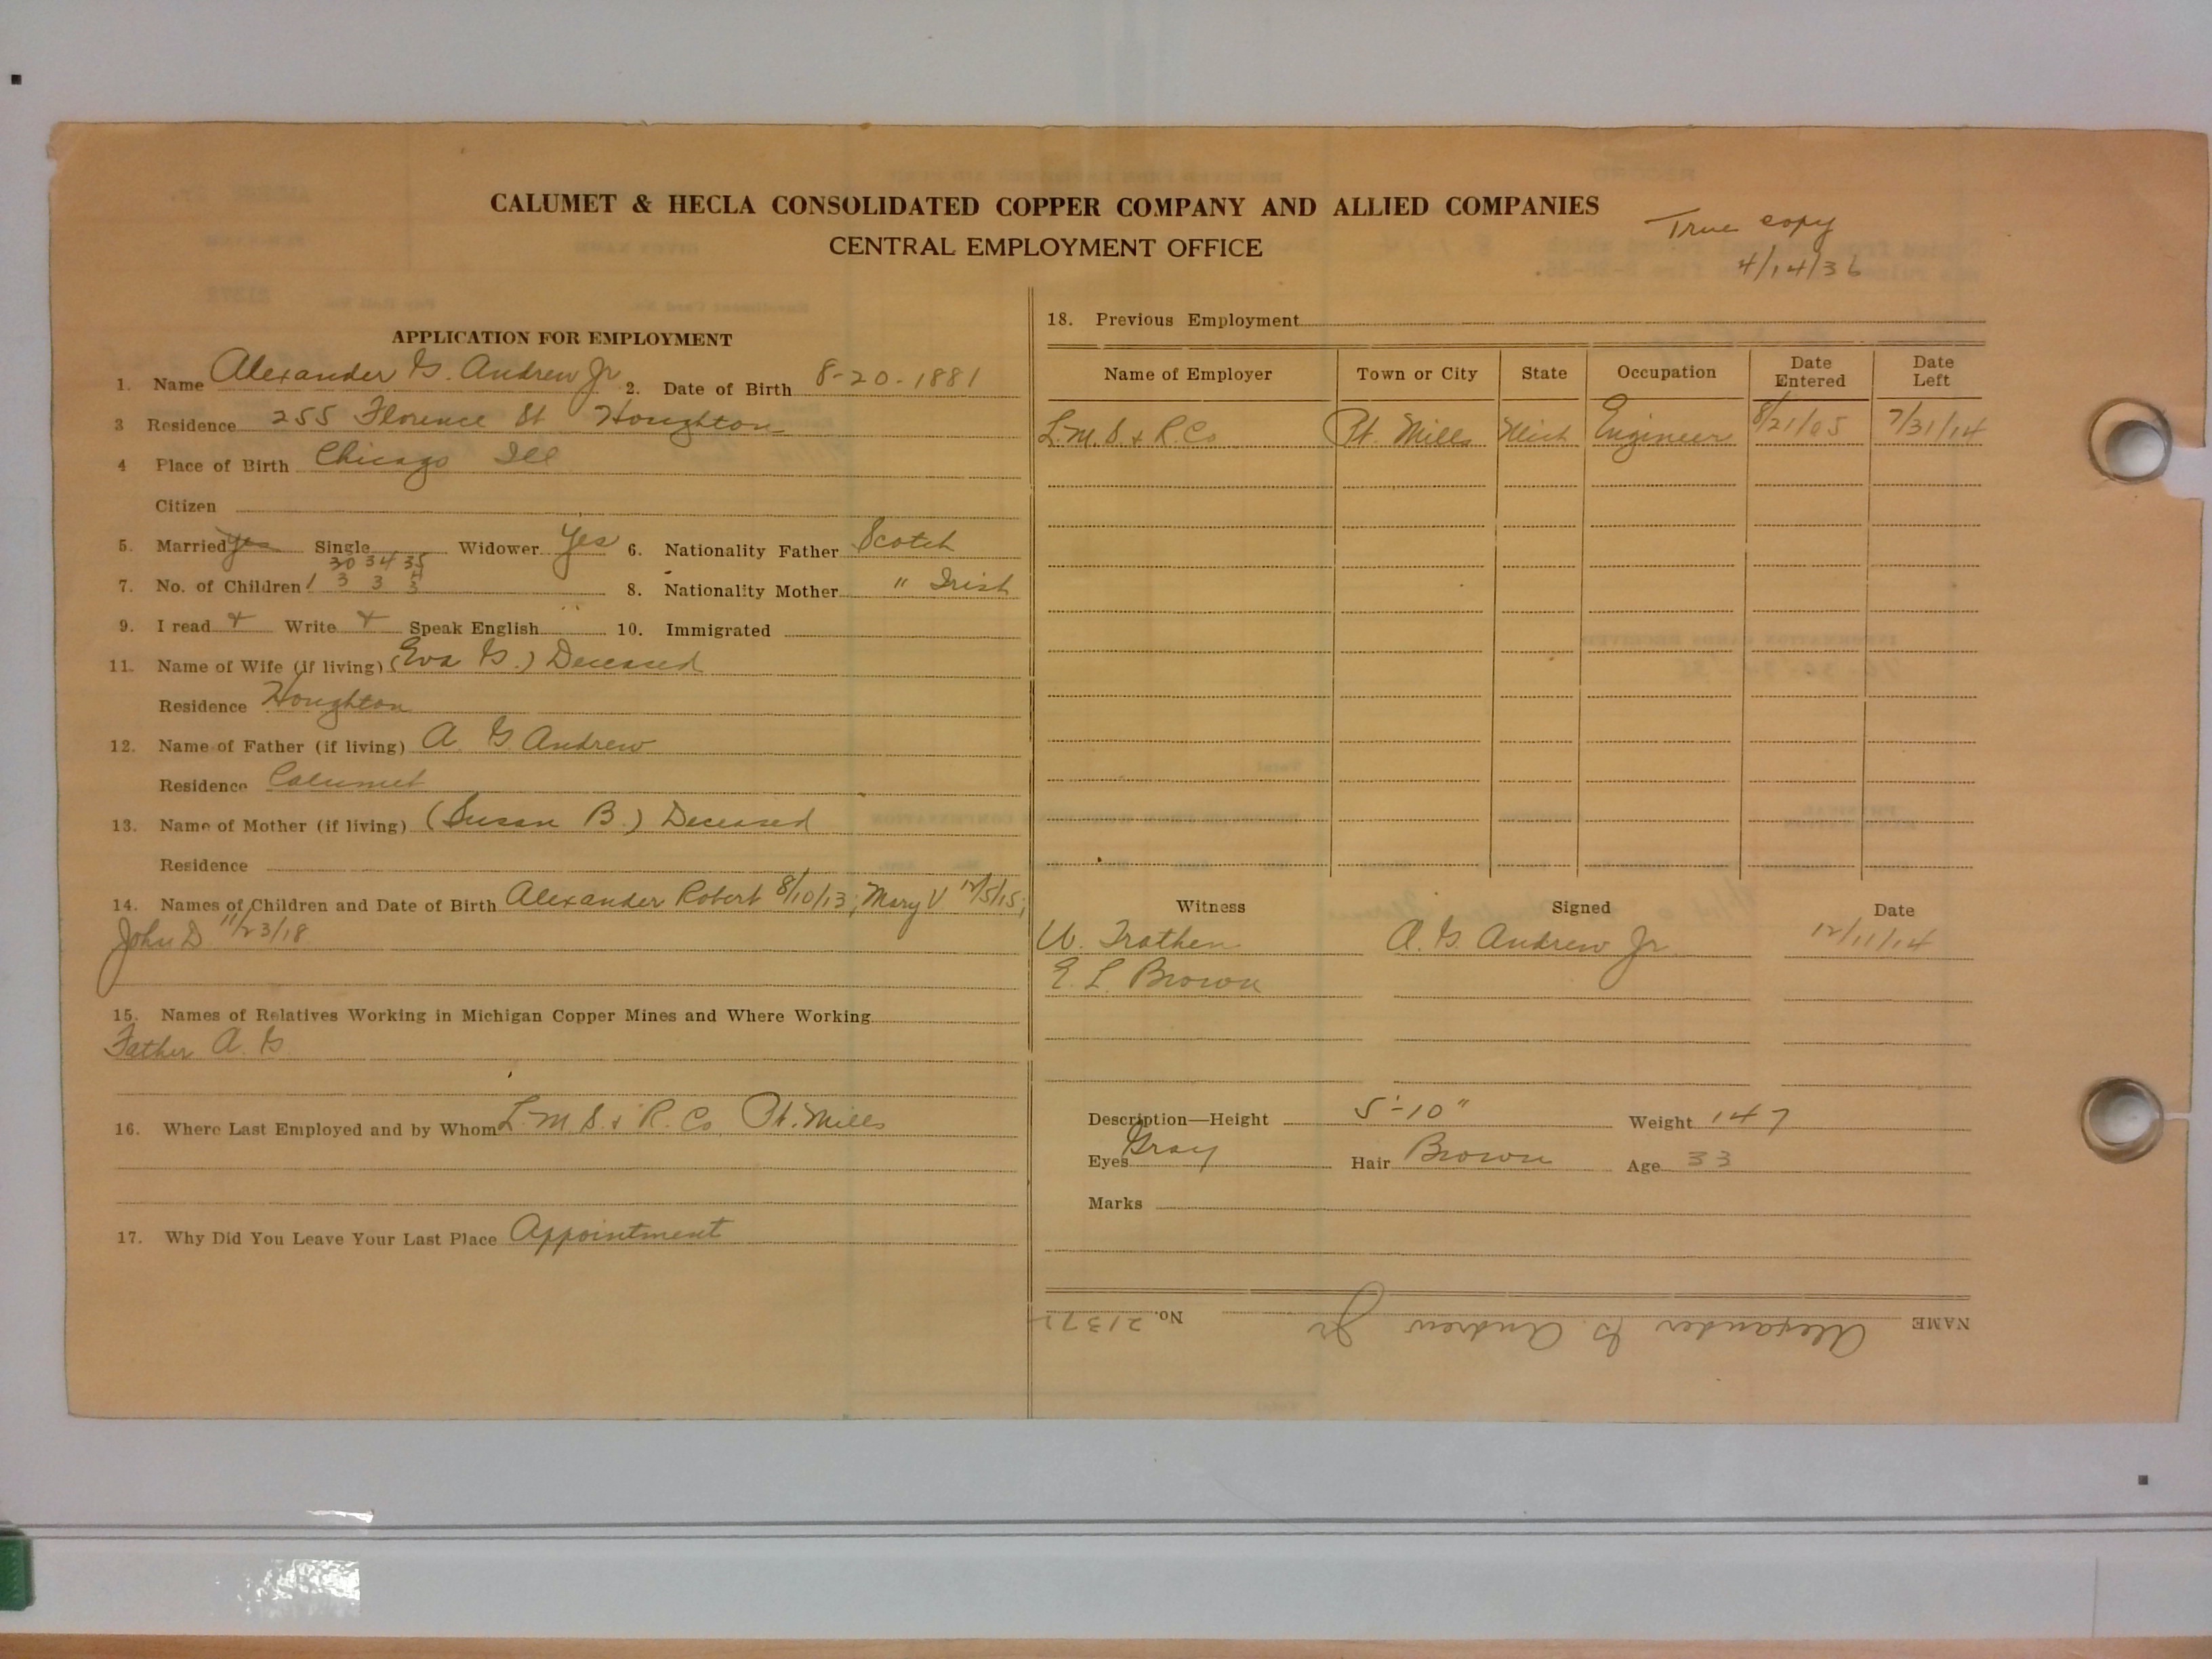 CALUMET & HECLA CONSOLIDATED COPPER COMPANY AND ALLIED COMPANIES
CENTRAL EMPLOYMENT OFFICE
True copy
4/14/36
APPLICATION FOR EMPLOYMENT
1. Name Alexander G. Andrew Jr 2. Date of Birth 8-20-1881
3 Residence 255 Florence St Houghton
4 Place of Birth Chicago Ill
Citizen
5. Married yes Single Widower Yes 6. Nationality Father Scotch
30 34 35
7. No. of Children 1 3 3 3 8. Nationality Mother " Irish
9. I read + Write + Speak English " 10. Immigrated
11. Name of Wife (if living) (Eva G.) Deceased
Residence Houghton
12. Name of Father (if living) A G Andrew
Residence Calumet
13. Name of Mother (if living) (Susan B.) Deceased
Residence
14. Names of Children and Date of Birth Alexander Robert 8/10/13; Mary V 12/5/15;
John D 11/23/18
15. Names of Relatives Working in Michigan Copper Mines and Where Working
Father A. G.
16. Where Last Employed and by Whom L. M. S. & R. Co Pt. Mills
17. Why Did You Leave Your Last Place Appointment
18. Previous Employment
Name of Employer Town or City State Occupation Date Entered Date Left
L. M. S. & R. Co Pt. Mills Mich Engineer 8/21/05 7/31/14
Witness Signed Date
W. Trathen A. G. Andrew Jr 12/11/14
E. L. Brown
Description—Height 5'-10" Weight 147
Eyes Gray Hair Brown Age 33
Marks
NAME Alexander G. Andrew Jr No. 21372